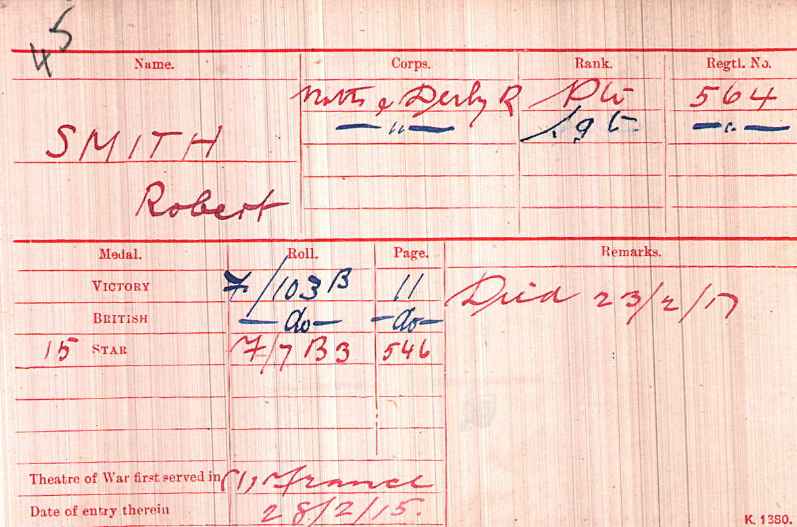 45
Name. Corps. Rank. Regtl. No.
Notts & Derby R Pte 564
SMITH — " — Sgt — " —
Robert
Medal. Roll. Page. Remarks.
VICTORY F/103 B 11 Died 23/2/17
BRITISH — do — — do —
15 STAR F/7 B 3 546
Theatre of War first served in (1) France
Date of entry therein 28/2/15.
K. 1380.